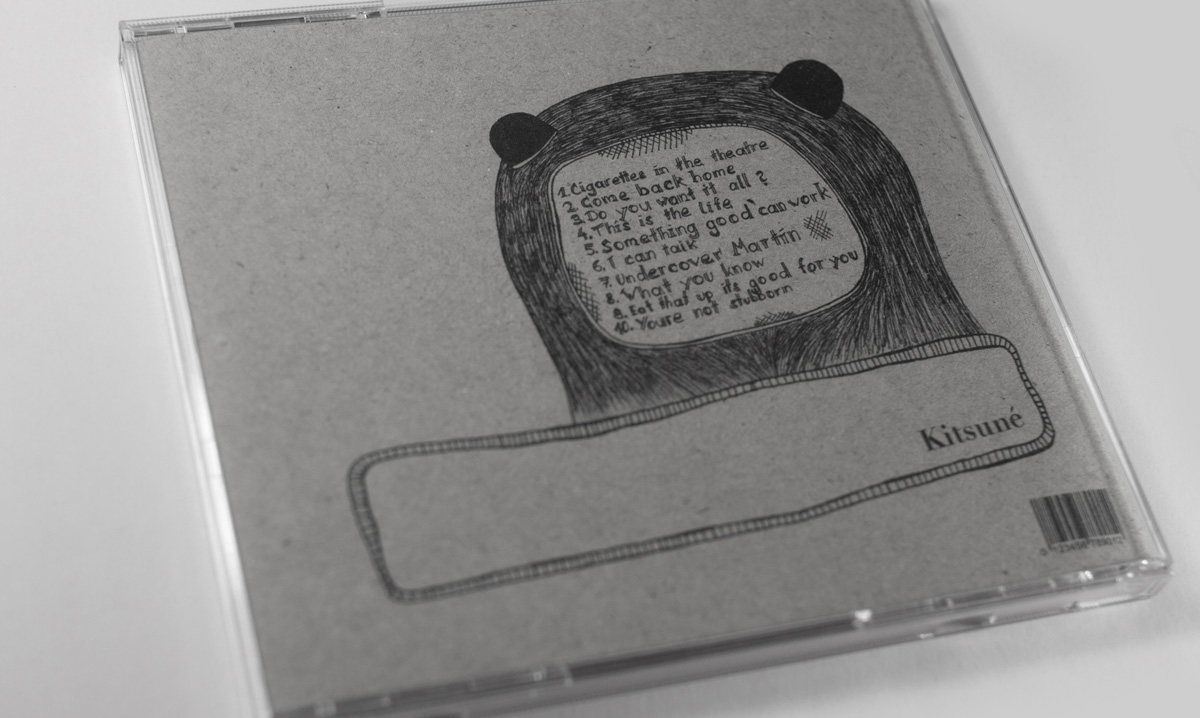 1. Cigarettes in the theatre
2. Come back home
3. Do you want it all ?
4. This is the life
5. Something good can work
6. I can talk
7. Undercover Martín
8. What you know
9. Eat that up its good for you
10. Youre not stubborn
Kitsuné